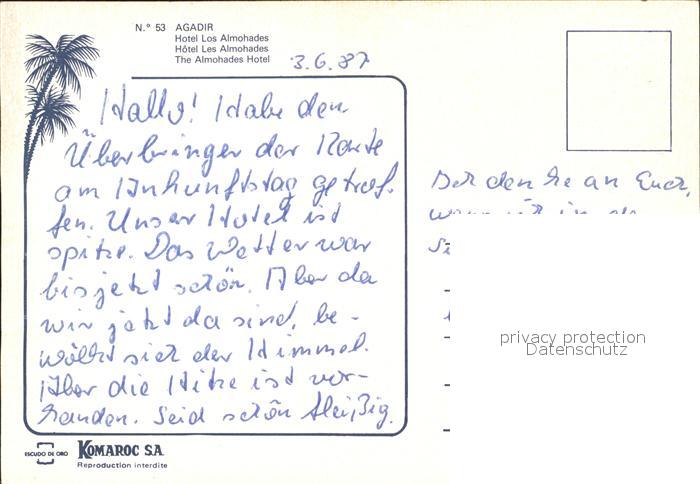 N.° 53 AGADIR
Hotel Los Almohades
Hôtel Les Almohades
The Almohades Hotel
3.6.87
Hallo! Habe den
Überbringer der Karte
am Ankunftstag getrof-
fen. Unser Hotel ist
spitze. Das Wetter war
bis jetzt schön. Aber da
wir jetzt da sind, be-
wölkt sich der Himmel.
Aber die Hitze ist vor-
handen. Seid schön fleißig.
denke an Euch,
privacy protection
Datenschutz
ESCUDO DE ORO
KOMAROC S.A.
Reproduction interdite